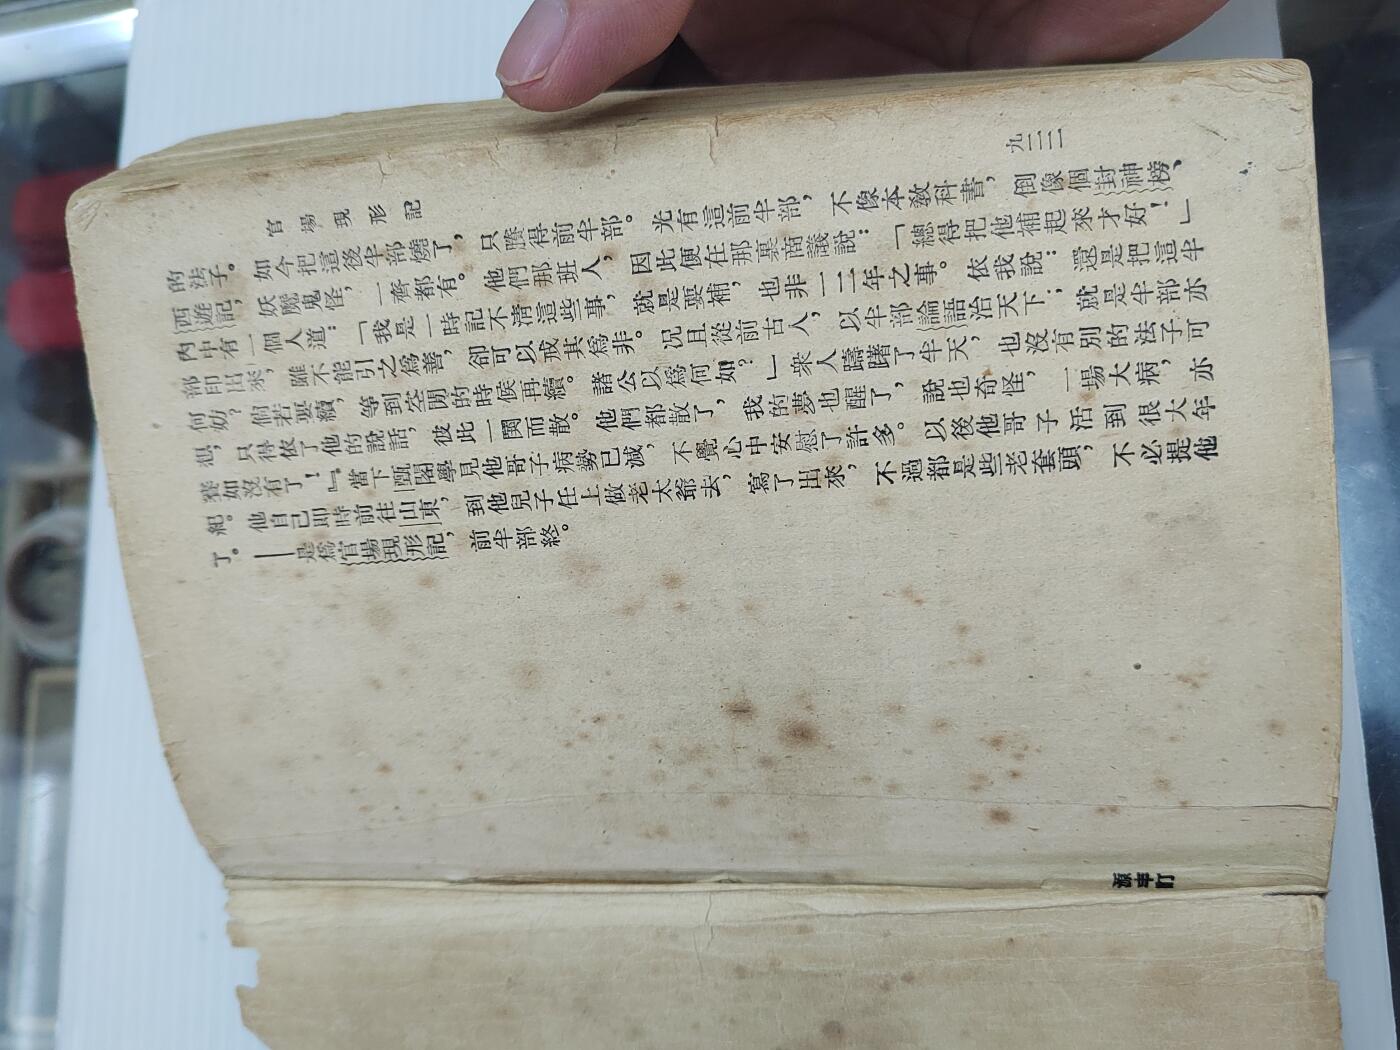 官場現形記
九三二
的法子。如今把這後半部燒了，只賸得前半部。光有這前半部，不像本敎科書，倒像個封神榜、
西遊記，妖魔鬼怪，一齊都有。他們那班人，因此便在那裏商議說：「總得把他補起來才好！」
內中有一個人道：「我是一時記不清這些事，就是要補，也非一二年之事。依我說：還是把這半
部印出來，雖不能引之爲善，卻可以戒其爲非。况且從前古人，以半部論語治天下；就是半部亦
何妨？倘若要續，等到空閒的時候再續。諸公以爲何如？」衆人躊躇了半天，也沒有別的法子可
想，只得依了他的說話，彼此一鬨而散。他們都散了，我的夢也醒了，說也奇怪，一場大病，亦
賽如沒有了！』當下甄閣學見他哥子病勢已減，不覺心中安慰了許多。以後他哥子活到很大年
紀。他自己卽時前往山東，到他兒子任上做老太爺去，寫了出來，不過都是些老套頭，不必提他
了。——是爲官場現形記，前半部終。